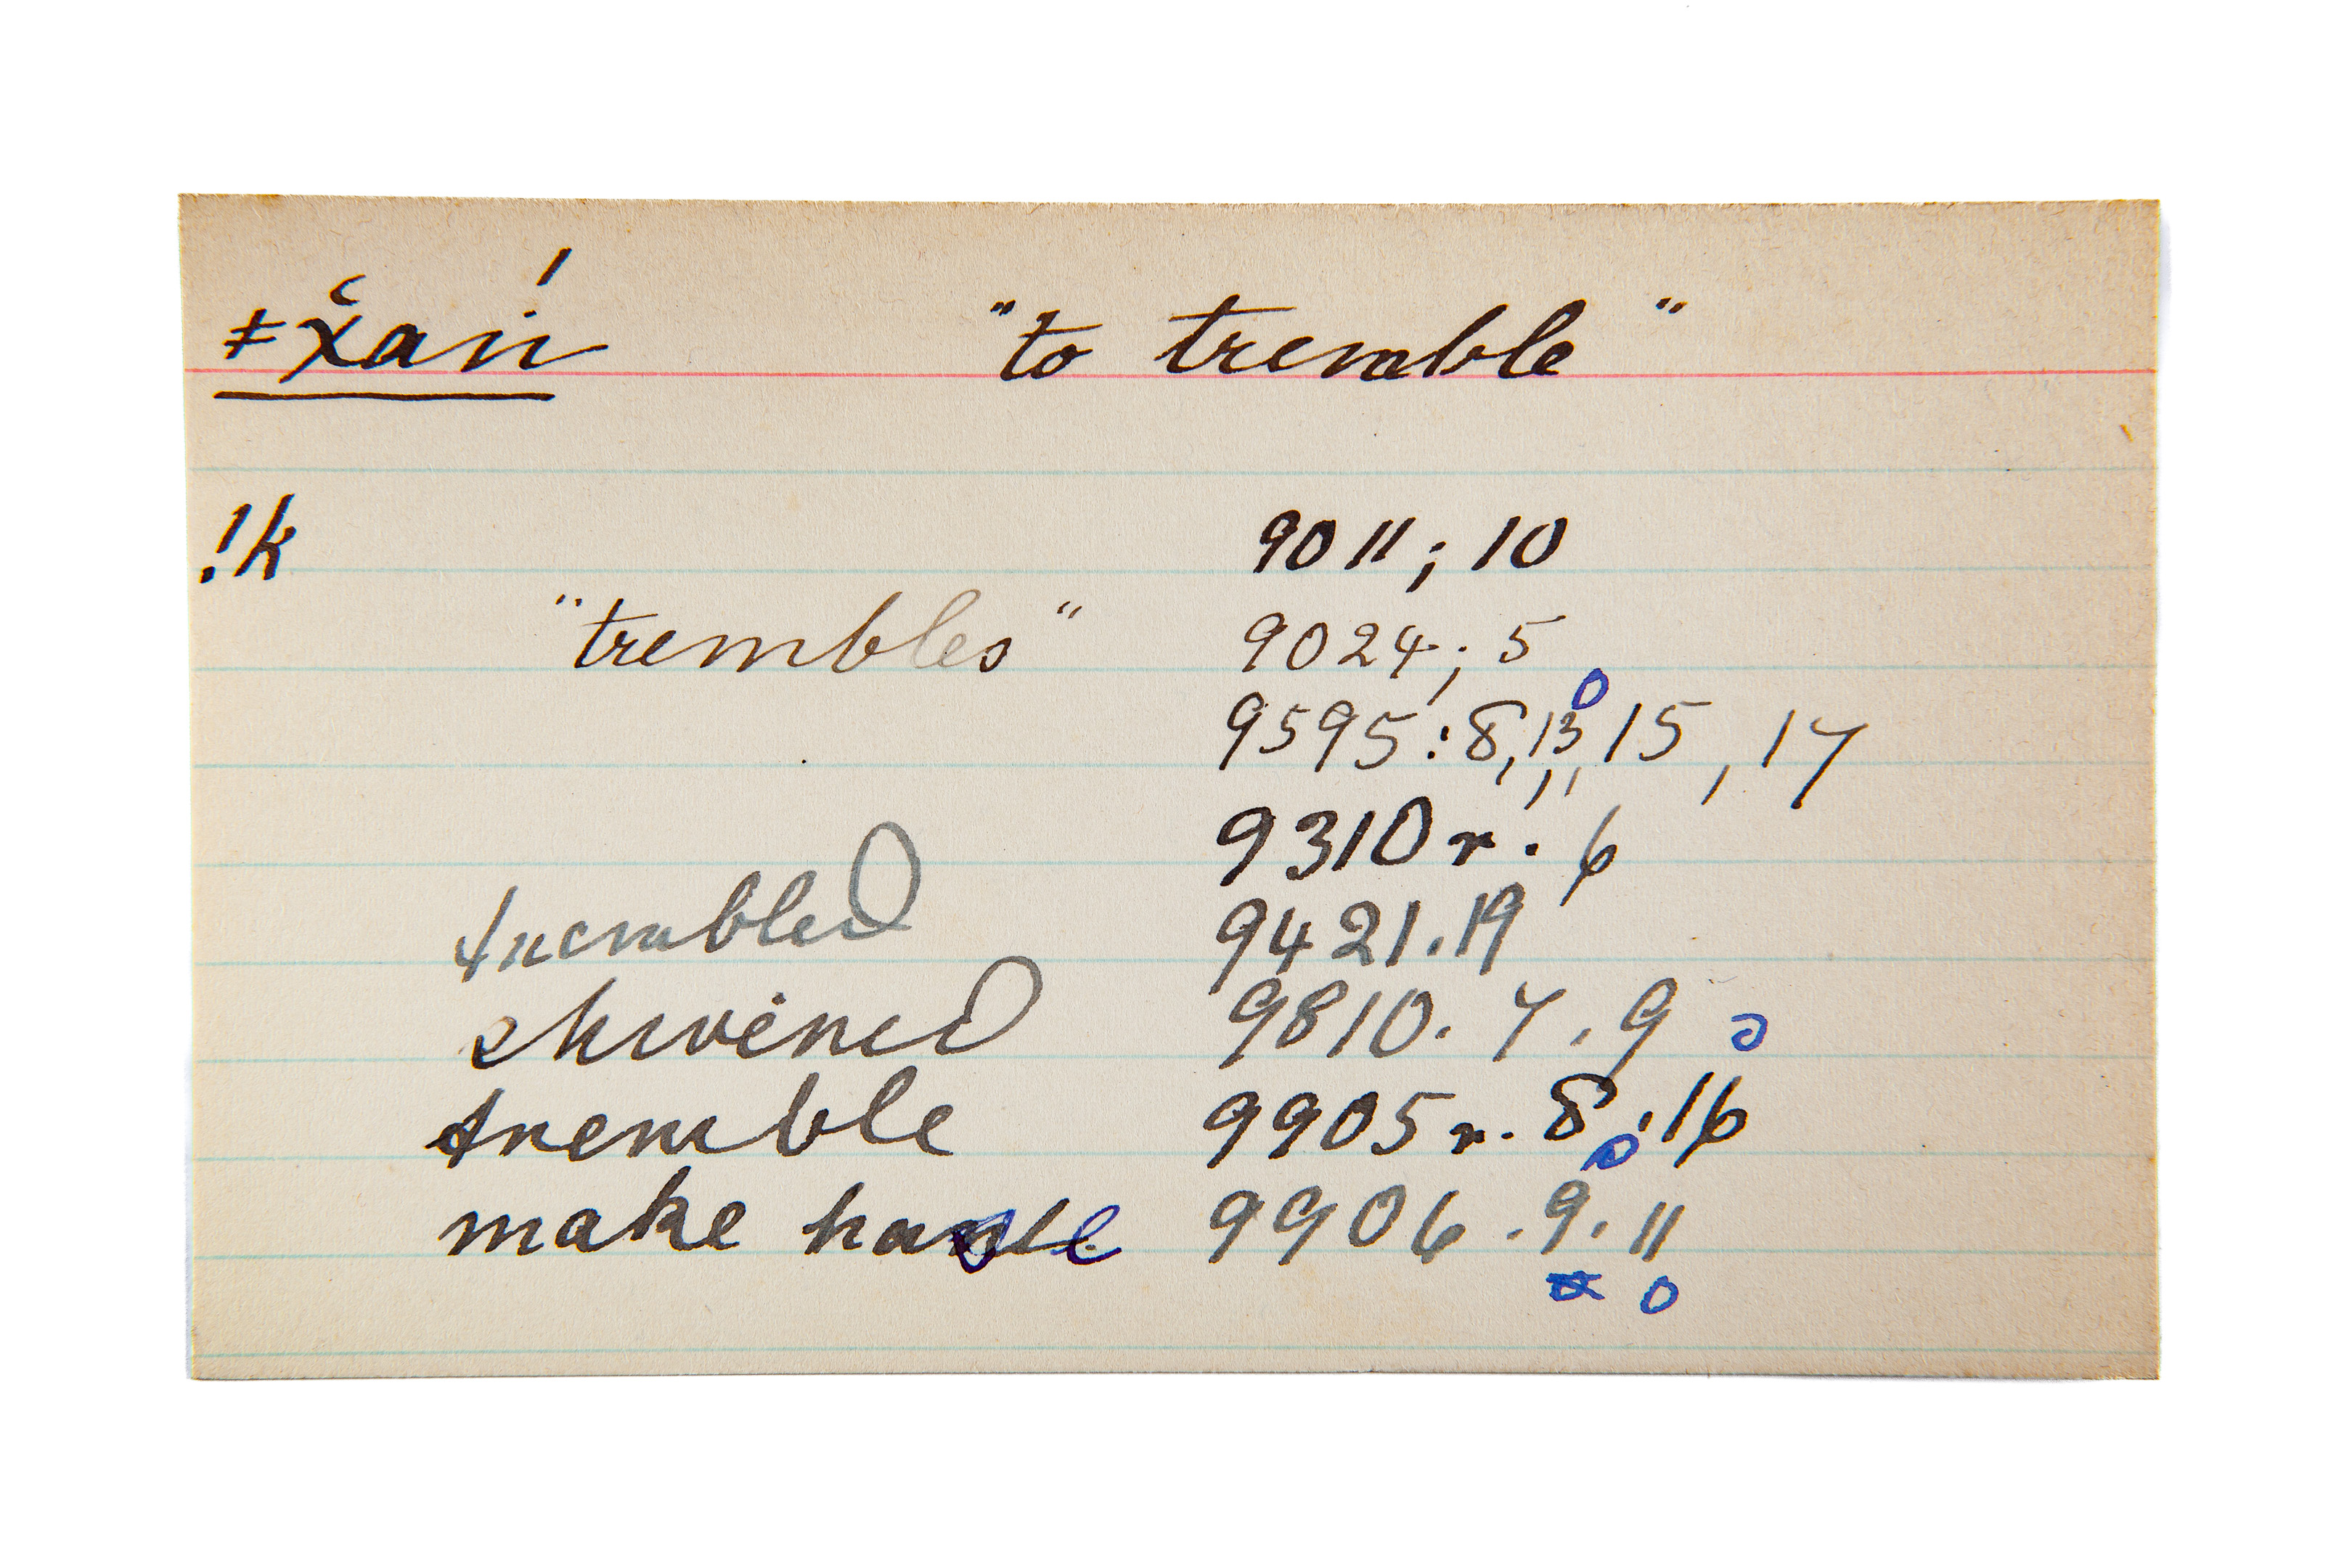 ǂx̌ań "to tremble"
!k 9011; 10
"trembles" 9024; 5
9595: 8, 13, 15, 17
9310r. 6
trembled 9421. 19
shivered 9810. 7. 9
tremble 9905r. 8. 16
make haste 9906. 9. 11